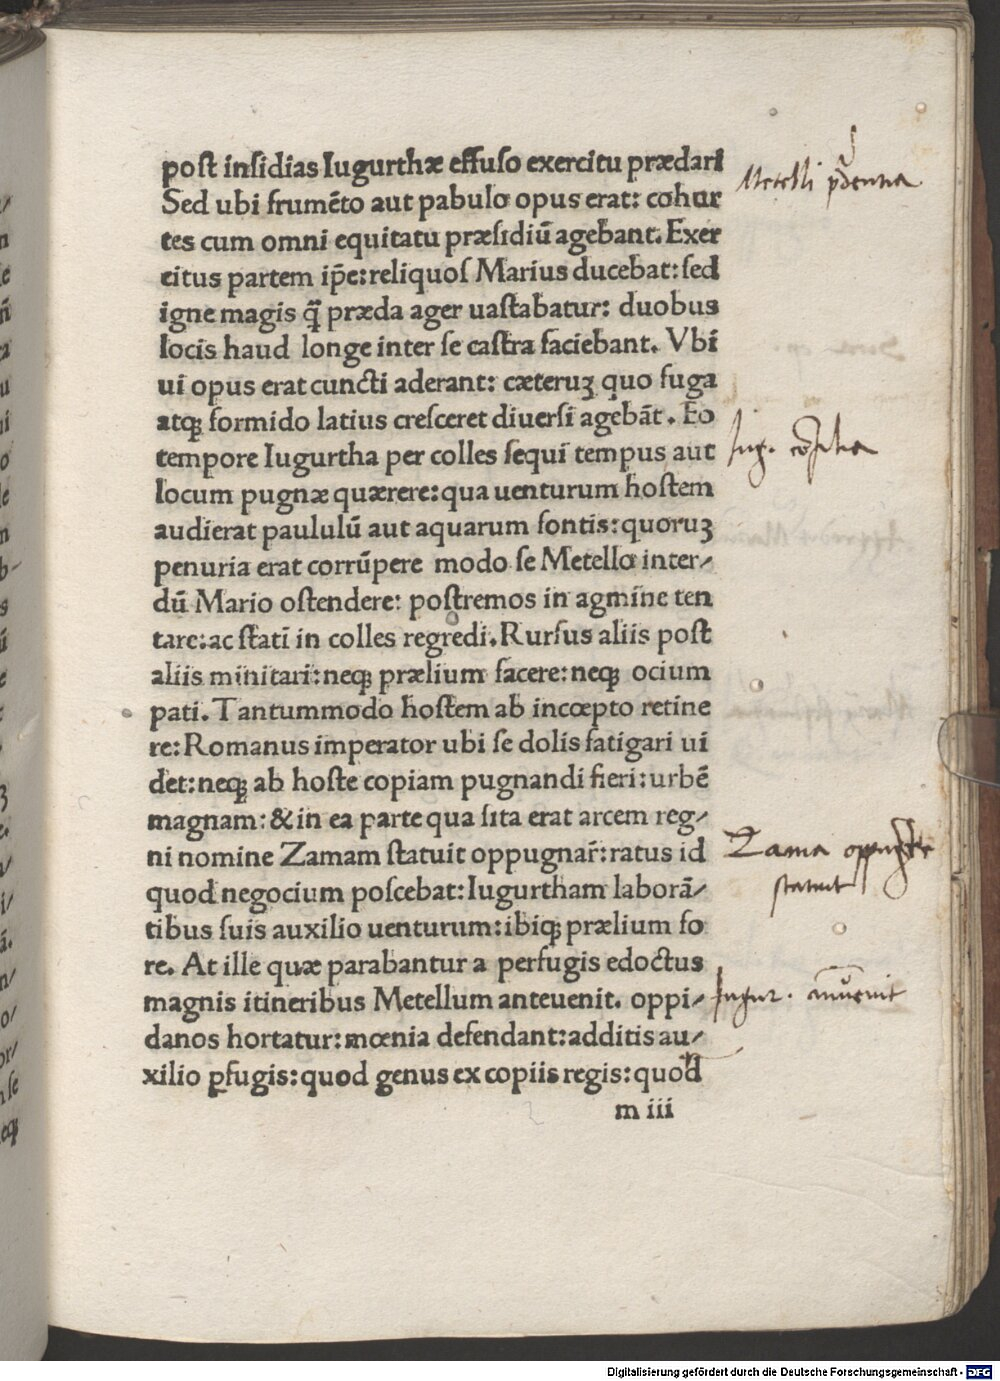 post insidias Iugurthæ effuso exercitu prædari
Metelli prudentia
Sed ubi frumēto aut pabulo opus erat: cohor
tes cum omni equitatu præsidiū agebant. Exer
citus partem ip̄e: reliquos Marius ducebat: sed
igne magis q̄ præda ager uastabatur: duobus
locis haud longe inter se castra faciebant. Vbi
ui opus erat cuncti aderant: cæteruꝫ quo fuga
atqꝫ formido latius cresceret diuersi agebāt. Eo
tempore Iugurtha per colles sequi tempus aut
Iug. cōsilia
locum pugnæ quærere: qua uenturum hostem
audierat paululū aut aquarum fontis: quoruꝫ
penuria erat corrūpere modo se Metello inter/
dū Mario ostendere: postremos in agmine ten
tare: ac statī in colles regredi. Rursus aliis post
aliis minitari: neqꝫ prælium facere: neqꝫ ocium
pati. Tantummodo hostem ab incœpto retine
re: Romanus imperator ubi se dolis fatigari ui
det: neqꝫ ab hoste copiam pugnandi fieri: urbē
magnam: & in ea parte qua sita erat arcem reg/
ni nomine Zamam statuit oppugnar̄: ratus id
Zama
statuit
quod negocium poscebat: Iugurtham laborā/
tibus suis auxilio uenturum: ibiqꝫ prælium fo
re. At ille quæ parabantur a perfugis edoctus
magnis itineribus Metellum anteuenit. oppi/
Iugur.
danos hortatur: mœnia defendant: additis au/
xilio ꝑfugis: quod genus ex copiis regis: quod
m iii
Digitalisierung gefördert durch die Deutsche Forschungsgemeinschaft - DFG